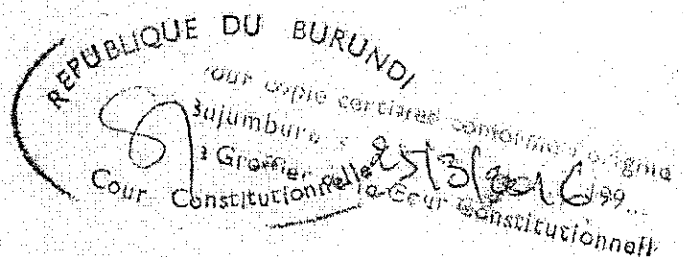 REPUBLIQUE DU BURUNDI
Pour copie certifiée conforme à l'origina
Bujumbura
Greffier de la Cour Constitutionnell
25/3/2016 199...
Cour Constitutionnelle